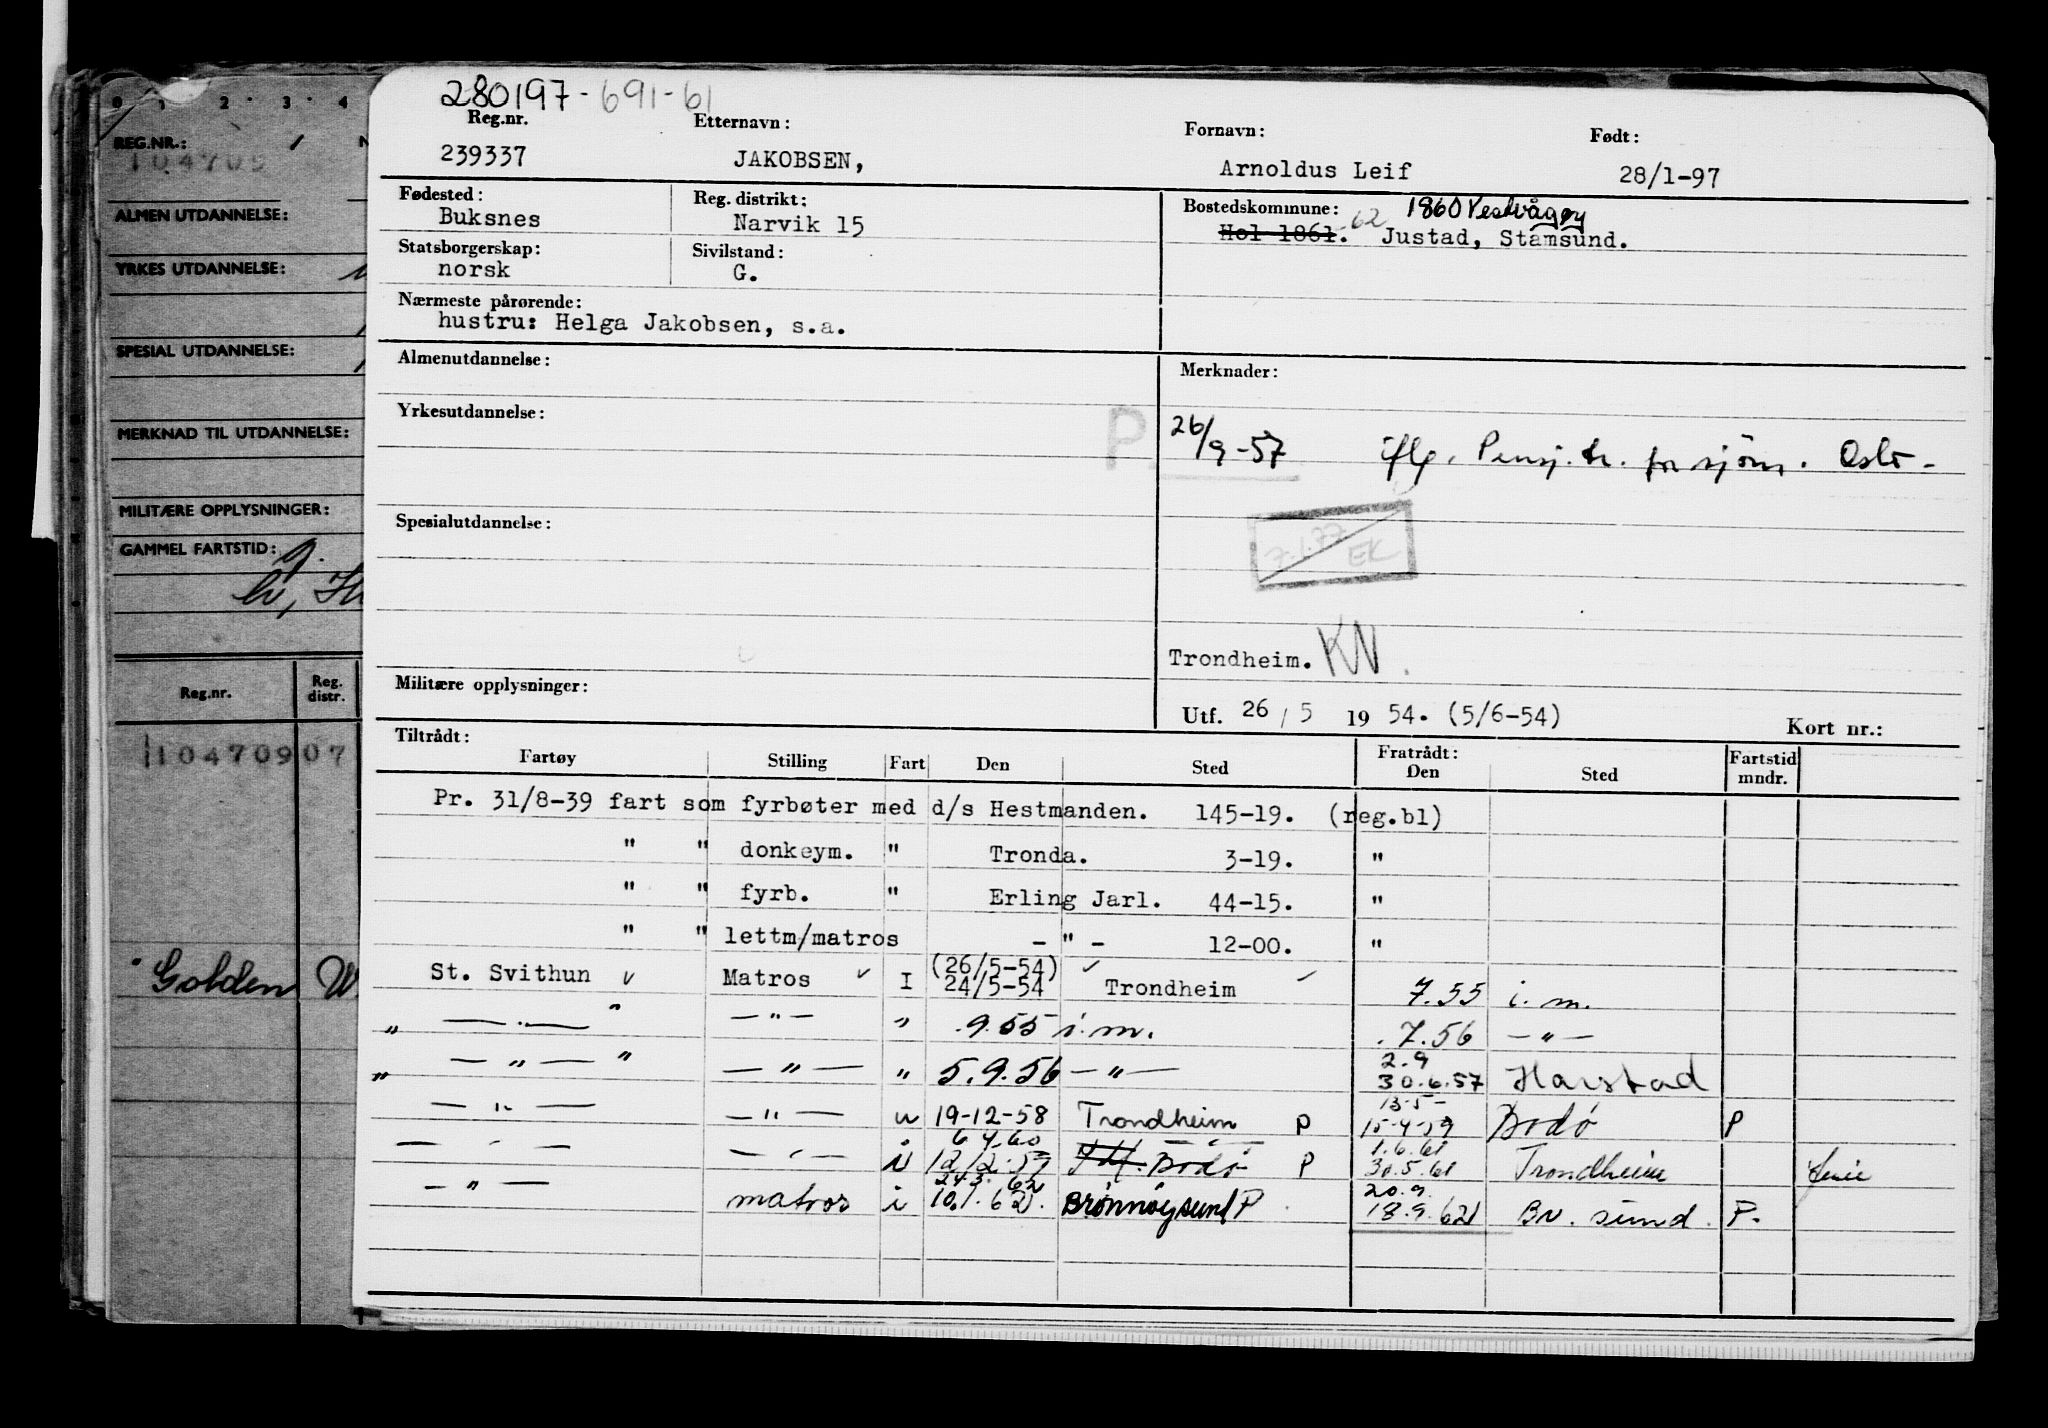 0 1 2 3 4
REG.NR.:
104709
ALMEN UTDANNELSE:
YRKES UTDANNELSE:
SPESIAL UTDANNELSE:
MERKNAD TIL UTDANNELSE:
MILITÆRE OPPLYSNINGER:
GAMMEL FARTSTID:
Reg.nr. Reg. distr.
10470907
Golden W
280197-691-61
Reg.nr. Etternavn: Fornavn: Født:
239337 JAKOBSEN, Arnoldus Leif 28/1-97
Fødested: Reg. distrikt: Bostedskommune: 62 1860 Vestvågøy
Buksnes Narvik 15 Hol 1861. Justad, Stamsund.
Statsborgerskap: Sivilstand:
norsk G.
Nærmeste pårørende:
hustru: Helga Jakobsen, s.a.
Almenutdannelse: Merknader:
Yrkesutdannelse:
P 26/9-57 iflg. Pensj.tr. for sjøm. Oslo-
Spesialutdannelse:
7.1.77 EK
Trondheim. KN.
Militære opplysninger:
Utf. 26/5 1954. (5/6-54) Kort nr.:
Tiltrådt: Fratrådt:
Fartøy Stilling Fart Den Sted Den Sted Fartstid mndr.
Pr. 31/8-39 fart som fyrbøter med d/s Hestmanden. 145-19. (reg.bl)
" " donkeym. " Tronda. 3-19. "
" " fyrb. " Erling Jarl. 44-15. "
" " lettm/matros - " - 12-00. "
(26/5-54)
St. Svithun Matros I 24/5-54 Trondheim 7.55 i.m.
" — . — " — " — " .9.55 i.m. .7.56 — " —
2.9
" — " — " — " — " 5.9.56 — " — 30.6.57 Harstad
13-5-
— " — — " — " 19-12-58 Trondheim P 15-4-59 Bodø P
6 4.60 1.6.61
— " — — " — i 12/2.59 Bodø P 30.5.61 Trondheim
24.3.62 20.9.
— " — matros i 10.1.62. Brønnøysund P 18.9.62 Br. sund. P.